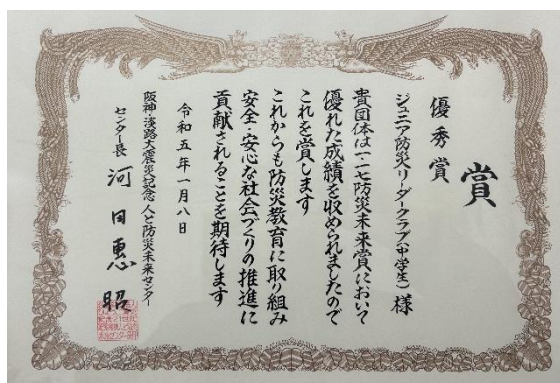 賞
優秀賞
ジュニア防災リーダークラブ(中学生) 様
貴団体は一・一七防災未来賞において
優れた成績を収められましたので
これを賞します
これからも防災教育に取り組み
安全・安心な社会づくりの推進に
貢献されることを期待します
令和五年一月八日
阪神・淡路大震災記念 人と防災未来センター
センター長 河田惠昭